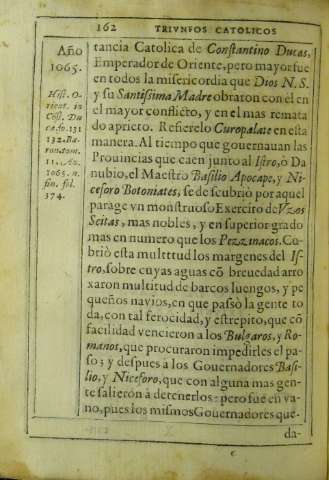 162 TRIVNFOS CATOLICOS
Año
1065.
Hist. O-
rient. in
Cōst. Du
ca. fo. 131
132. Ba-
ron. tom.
11. Añ.
1065. n.
fin. fol.
374.
tancia Catolica de Constantino Ducas,
Emperador de Oriente, pero mayor fue
en todos la misericordia que Dios N. S.
y su Santissima Madre obraron con èl en
el mayor conflicto, y en el mas remata
do aprieto. Refierelo Curopalate en esta
manera. Al tiempo que gouernauan las
Prouincias que caen junto al Istro, ò Da
nubio, el Maestro Basilio Apocape, y Ni-
ceforo Botoniates, se descubriò por aquel
parage vn monstruoso Exercito de Vzos
Scitas, mas nobles, y en superior grado
mas en numero que los Pezzinacos. Cu-
briò esta multitud los margenes del Is-
tro, sobre cuyas aguas cō breuedad arro
xaron multitud de barcos luengos, y pe
queños navios, en que passò la gente to
da, con tal ferocidad, y estrepito, que cō
facilidad vencieron a los Bulgaros, y Ro-
manos, que procuraron impedirles el pa-
so; y despues a los Gouernadores Basi-
lio, y Niceforo, que con alguna mas gen-
te salieron à detenerlos: pero fue en va-
no, pues los mismos Gouernadores que-
da-